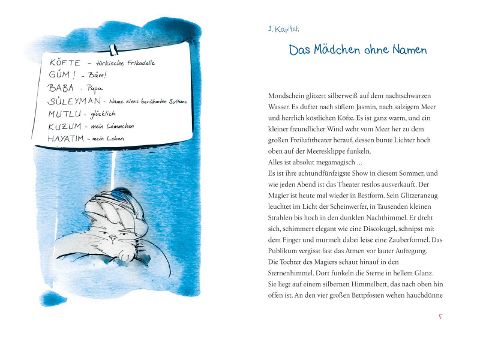 KÖFTE – türkische Frikadelle
GÜM! – Bäm!
BABA – Papa
SÜLEYMAN – Name eines berühmten Sultans
MUTLU – glücklich
KUZUM – mein Lämmchen
HAYATIM – mein Leben
1. Kapitel
Das Mädchen ohne Namen
Mondschein glitzert silberweiß auf dem nachtschwarzen
Wasser. Es duftet nach süßem Jasmin, nach salzigem Meer
und herrlich köstlichen Köfte. Es ist ganz warm, und ein
kleiner freundlicher Wind weht vom Meer her zu dem
großen Freilufttheater herauf, dessen bunte Lichter hoch
oben auf der Meeresklippe funkeln.
Alles ist absolut megamagisch ...
Es ist ihre achtundfünfzigste Show in diesem Sommer, und
wie jeden Abend ist das Theater restlos ausverkauft. Der
Magier ist heute mal wieder in Bestform. Sein Glitzeranzug
leuchtet im Licht der Scheinwerfer, in Tausenden kleinen
Strahlen bis hoch in den dunklen Nachthimmel. Er dreht
sich, schimmert elegant wie eine Discokugel, schnipst mit
dem Finger und murmelt dabei leise eine Zauberformel. Das
Publikum vergisst fast das Atmen vor lauter Aufregung.
Die Tochter des Magiers schaut hinauf in den
Sternenhimmel. Dort funkeln die Sterne in hellem Glanz.
Sie liegt auf einem silbernen Himmelbett, das nach oben hin
offen ist. An den vier großen Bettpfosten wehen hauchdünne
5